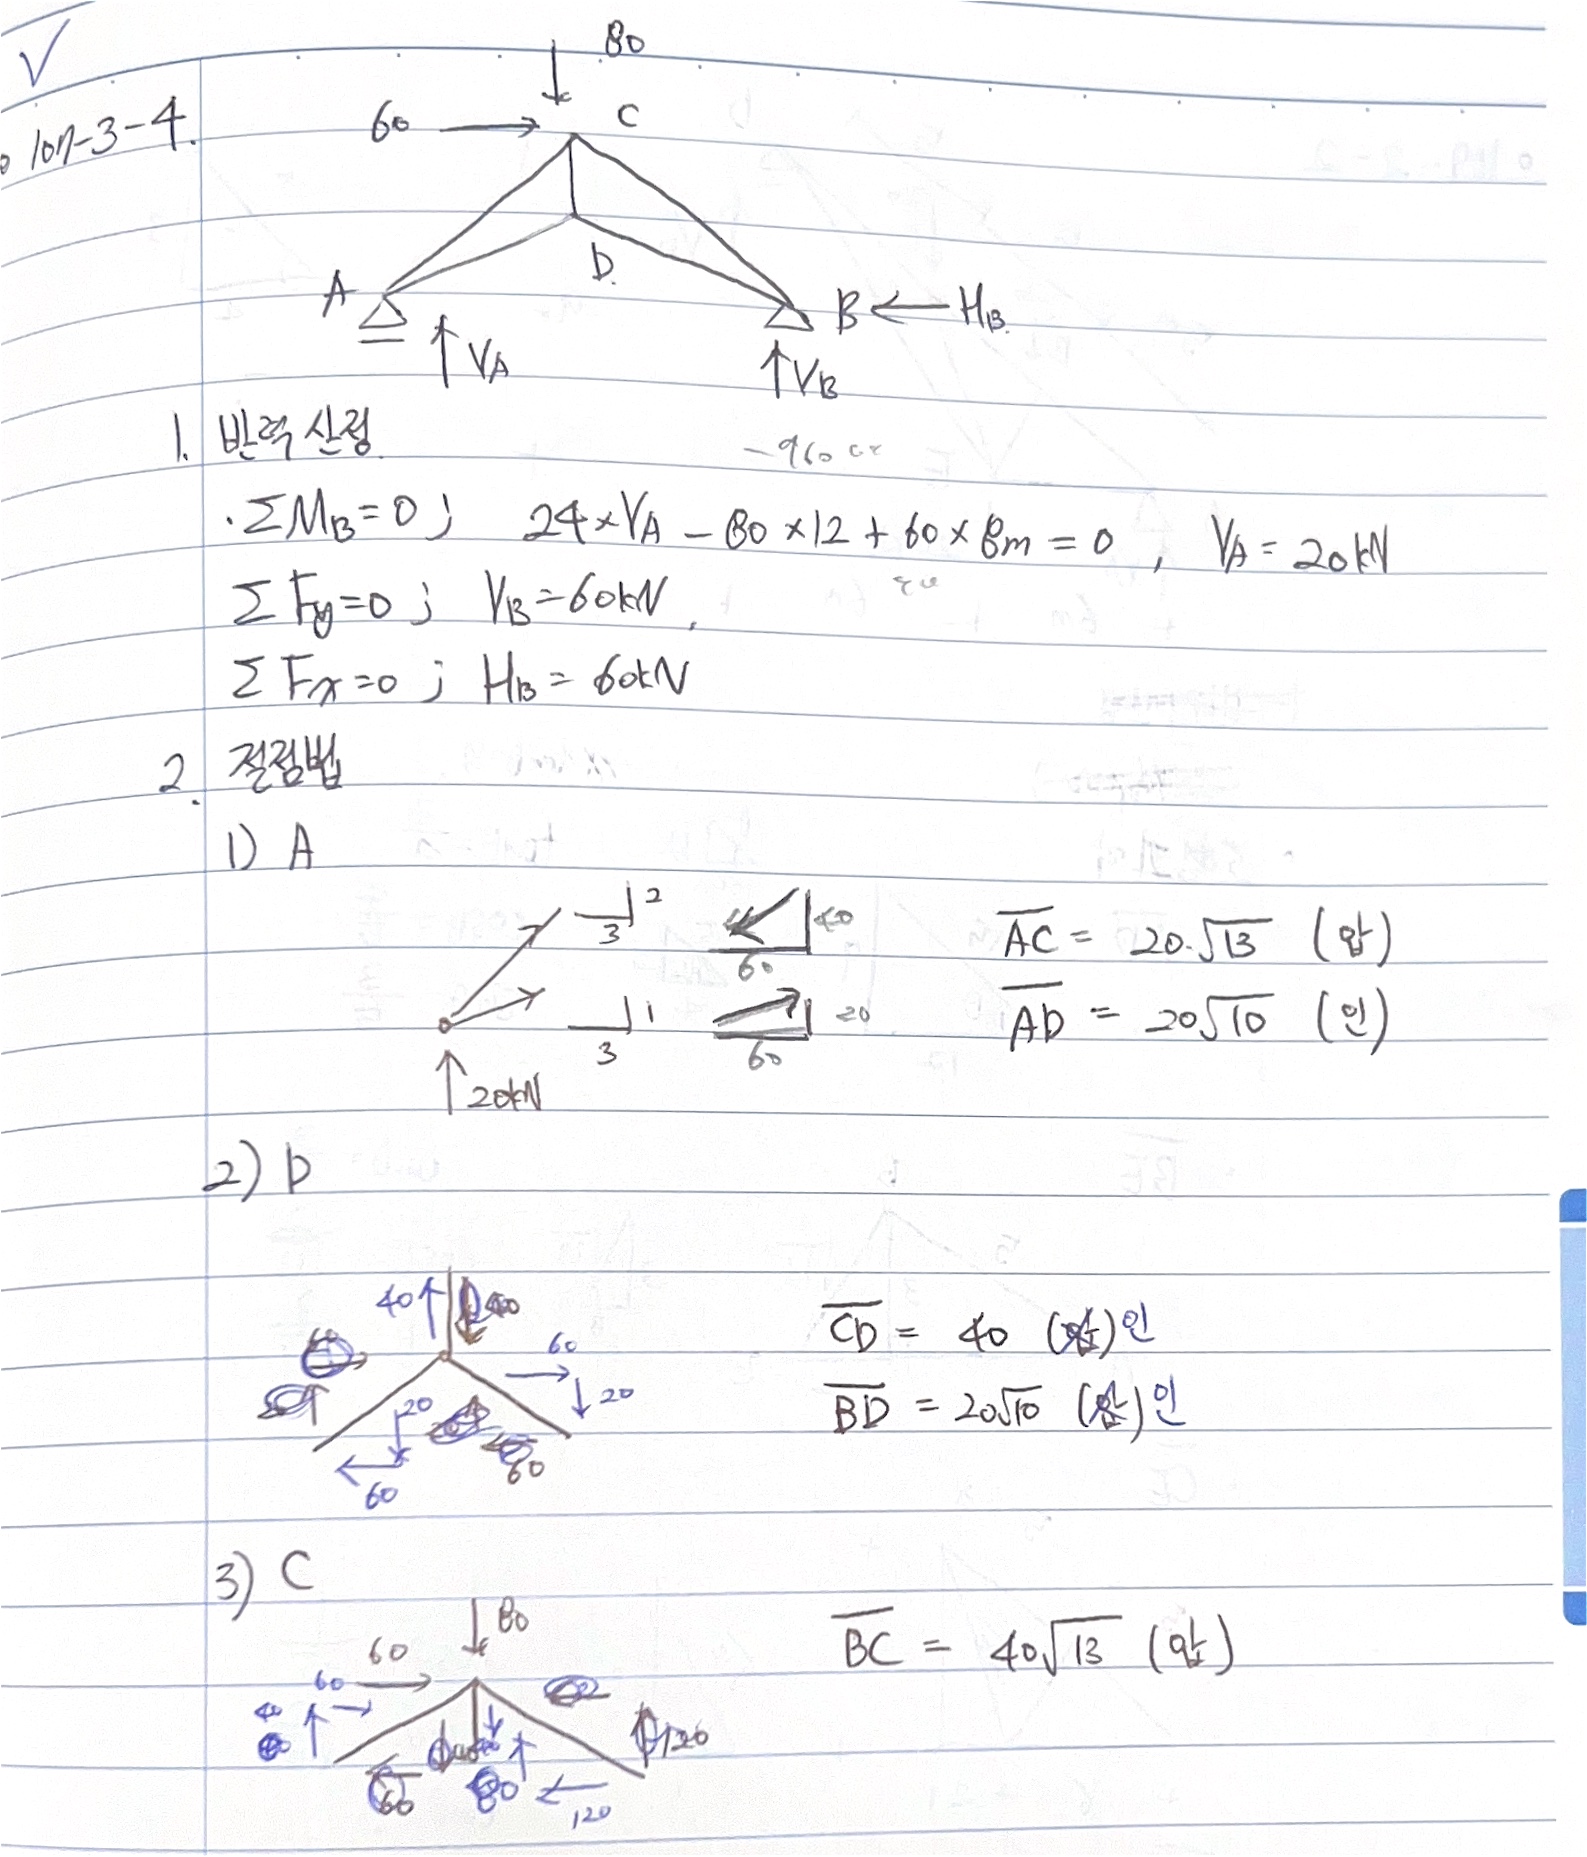 107-3-4.
80
60
C
D.
A
B
H_B.
V_A
V_B
1. 반력 산정.
-960
· ΣM_B=0 ; 24×V_A - 80×12 + 60×8m = 0 , V_A = 20kN
ΣFy=0 ; V_B=60kN.
ΣFx=0 ; H_B = 60kN
2. 절점법
1) A
2
3
40
60
AC = 20·√13 (압)
1
3
20
60
AD = 20√10 (인)
20kN
2) D
40
60
20
20
60
60
CD = 40 인
BD = 20√10 인
3) C
80
60
60
40
120
60
80
120
BC = 40√13 (압)